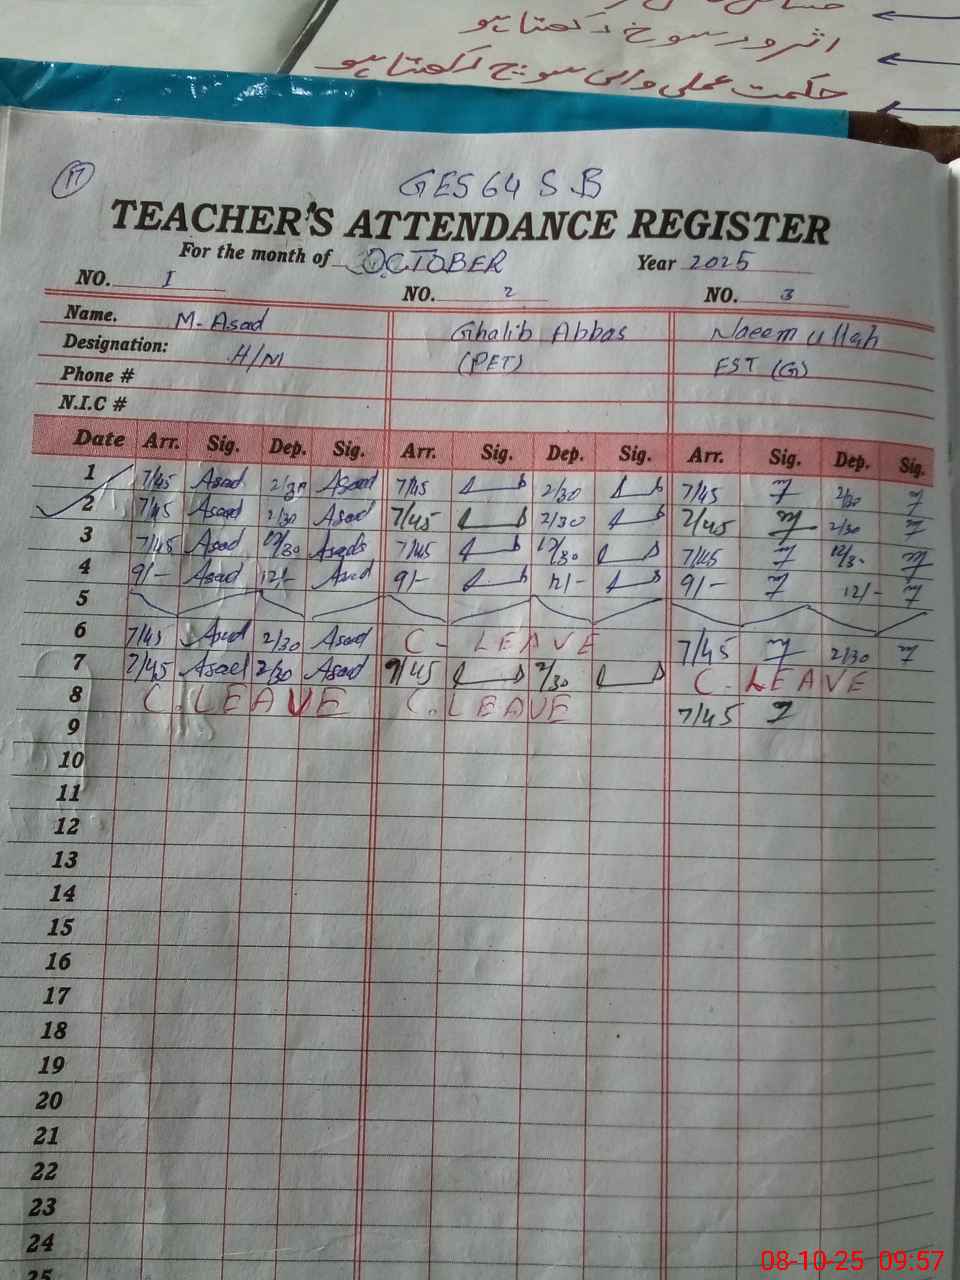 اثر و رسوخ رکھتا ہو
حکمت عملی والی سوچ رکھتا ہو
17
GES 64 S.B
TEACHER'S ATTENDANCE REGISTER
For the month of OCTOBER Year 2025
NO. 1 NO. 2 NO. 3
Name. M. Asad Ghalib Abbas Naeem ullah
Designation: H/M (PET) EST (G)
Phone #
N.I.C #
Date Arr. Sig. Dep. Sig. Arr. Sig. Dep. Sig. Arr. Sig. Dep. Sig.
1 7/45 Asad 2/30 Asad 7/45 2/30 7/45 2/30
2 7/45 Asad 2/30 Asad 7/45 2/30 7/45 2/30
3 7/45 Asad 12/30 Asad 7/45 12/30 7/45 12/30
4 9/- Asad 12/- Asad 9/- 12/- 9/- 12/-
5
6 7/45 Asad 2/30 Asad C - LEAVE 7/45 2/30
7 7/45 Asad 2/30 Asad 7/45 2/30 C. LEAVE
8 C. LEAVE C. LEAVE 7/45
9
10
11
12
13
14
15
16
17
18
19
20
21
22
23
24
25
08-10-25 09:57